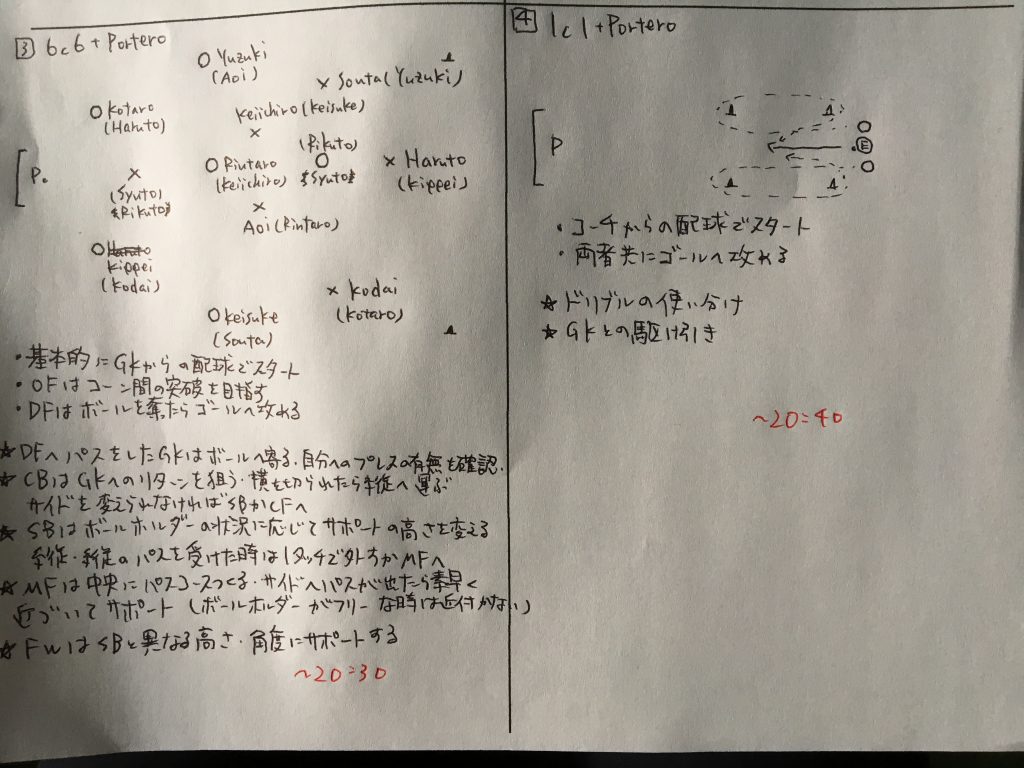 3 6c6 + Portero
○ Yuzuki
(Aoi)
× Souta (Yuzuki)
○ Kotaro
(Haruto)
Keiichiro (Keisuke)
×
(Rikuto)
P.
×
(Syuto)
○ Rintaro
(Keiichiro)
○
× Haruto
(Kippei)
×
Aoi (Rintaro)
○ Haruto
Kippei
(Kodai)
× Kodai
(Kotaro)
○ Keisuke
(Souta)
・基本的にGKからの配球でスタート
・OFはコーン間の突破を目指す
・DFはボールを奪ったらゴールへ攻める
☆ DFへパスをしたGKはボールへ寄る・自分へのプレスの有無を確認.
☆ CBはGKへのリターンを狙う・横を切られたら斜縦へ運ぶ
サイドを変えられなければSBかCFへ
☆ SBはボールホルダーの状況に応じてサポートの高さを変える
のパスを受けた時は1タッチで外すかMFへ
☆ MFは中央にパスコースつくる・サイドへパスが出たら素早く
近づいてサポート (ボールホルダーがフリーな時は近付かない)
☆ FWはSBと異なる高さ・角度にサポートする
~20:30
4 1c1 + Portero
P
○
○
・コーチからの配球でスタート
・両者共にゴールへ攻める
☆ ドリブルの使い分け
☆ GKとの駆け引き
~20:40